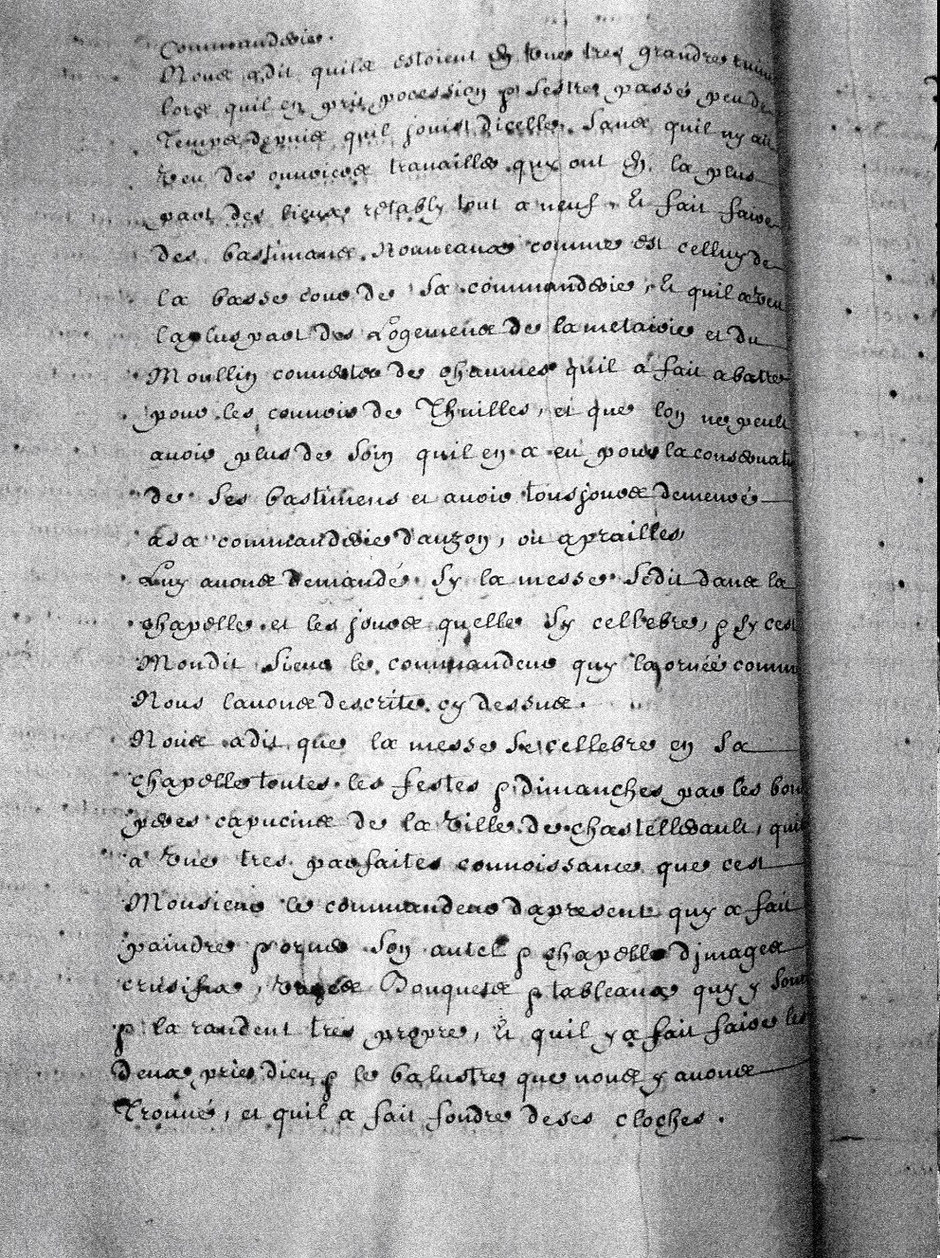 Commanderie.
Nous a dit quils estoient en une tres grandre ruin
lors quil en prit pocession & sestre passé peu de
Temps depuis quil jouist dicelle. Sans quil ny ait
veu des ouvriers travailler quy ont en la plus
part des lieux restably tout a neuf, Et fait faire
des bastimans Nouveaux comme est celluy de
la basse cour de Sa commanderie, Et quil a veu
la plus part des Logemens de la metairie et du
Moullin couvertes de chaumes quil a fait abattre
pour les couvrir de Thuilles, et que lon ne peult
avoir plus de soin quil en a eu pour la conservati
de Ses bastimens et avoir tousjours demeuré
a sa commanderie dauzon, ou a prailles,
Luy avons demandé Sy la messe Sedit dans la
chapelle et les jours quelle Sy cellebre, & Sy cest
Mondit Sieur le commandeur quy la ornée comm
Nous lavons descrite cy dessus.
Nous a dit que la messe se cellebre en Sa
chapelle toutes les festes & dimanches par les bon
peres capucins de la ville de chastellerault, quil
a une tres parfaites connoissance que cest
Monsieur le commandeur dapresent quy a fait
paindre & orner Son autel & chapelle djmages
crusifix, Bouquests & tableaux quy y sont
& la randent tres propre, Et quil y a fait faire les
deux prie dieu & le balustre que nous y avons
Trouvé, et quil a fait fondre de ses cloches.